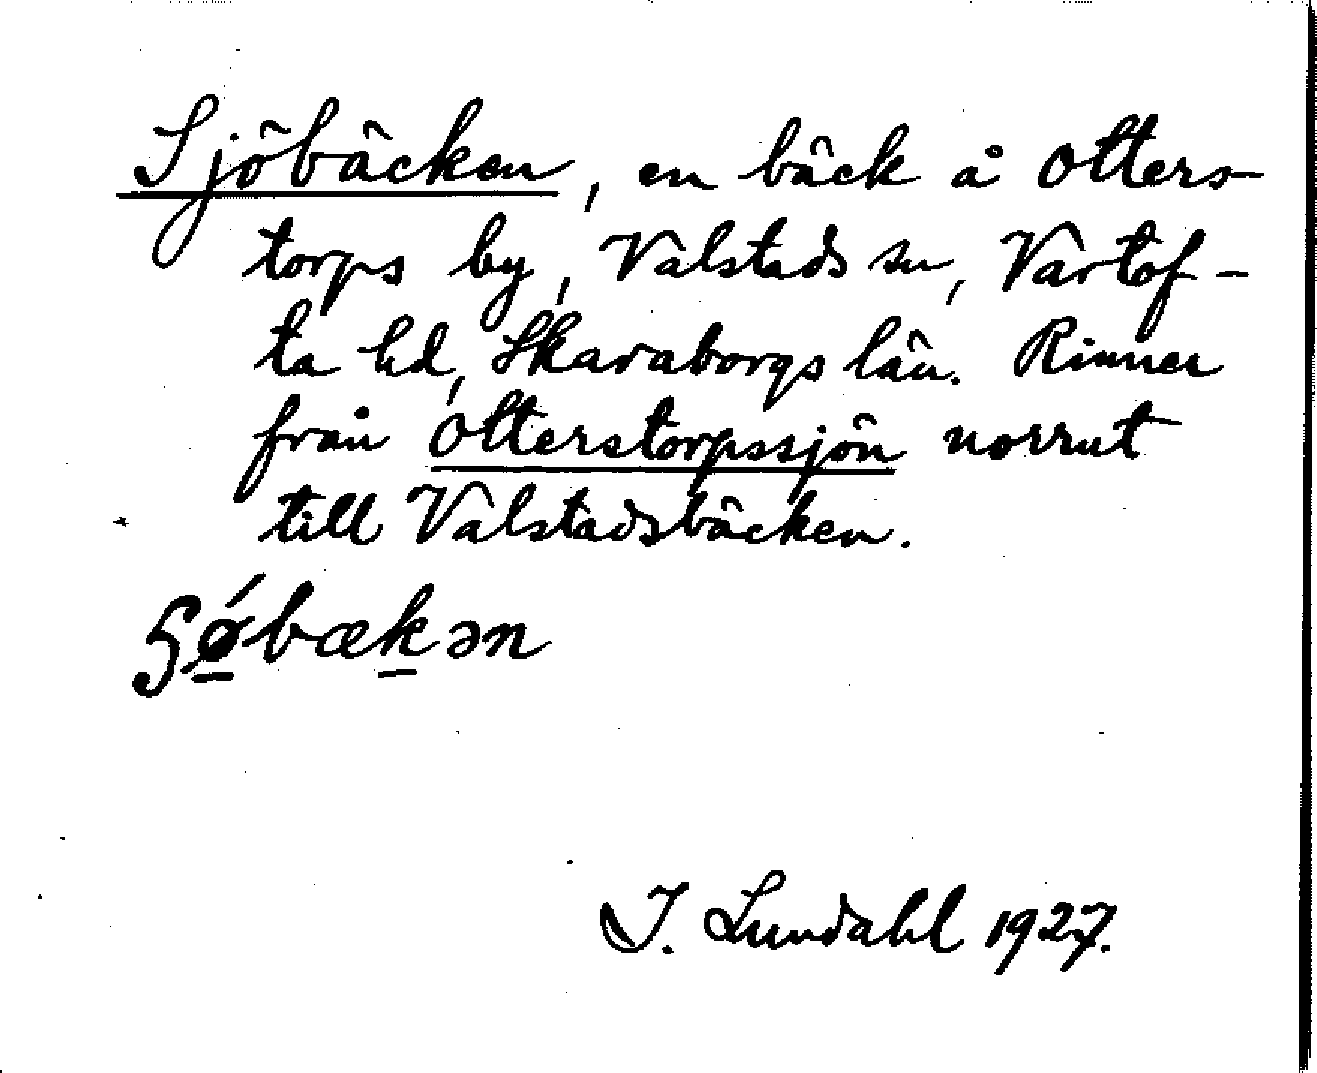 Sjöbäcken, en bäck å Otters-
torps by, Valstads sn, Vartof-
ta hd, Skaraborgs län. Rinner
från Otterstorpssjön norrut
till Valstadsbäcken.
ʂǿbækən
I. Lundahl 1927.